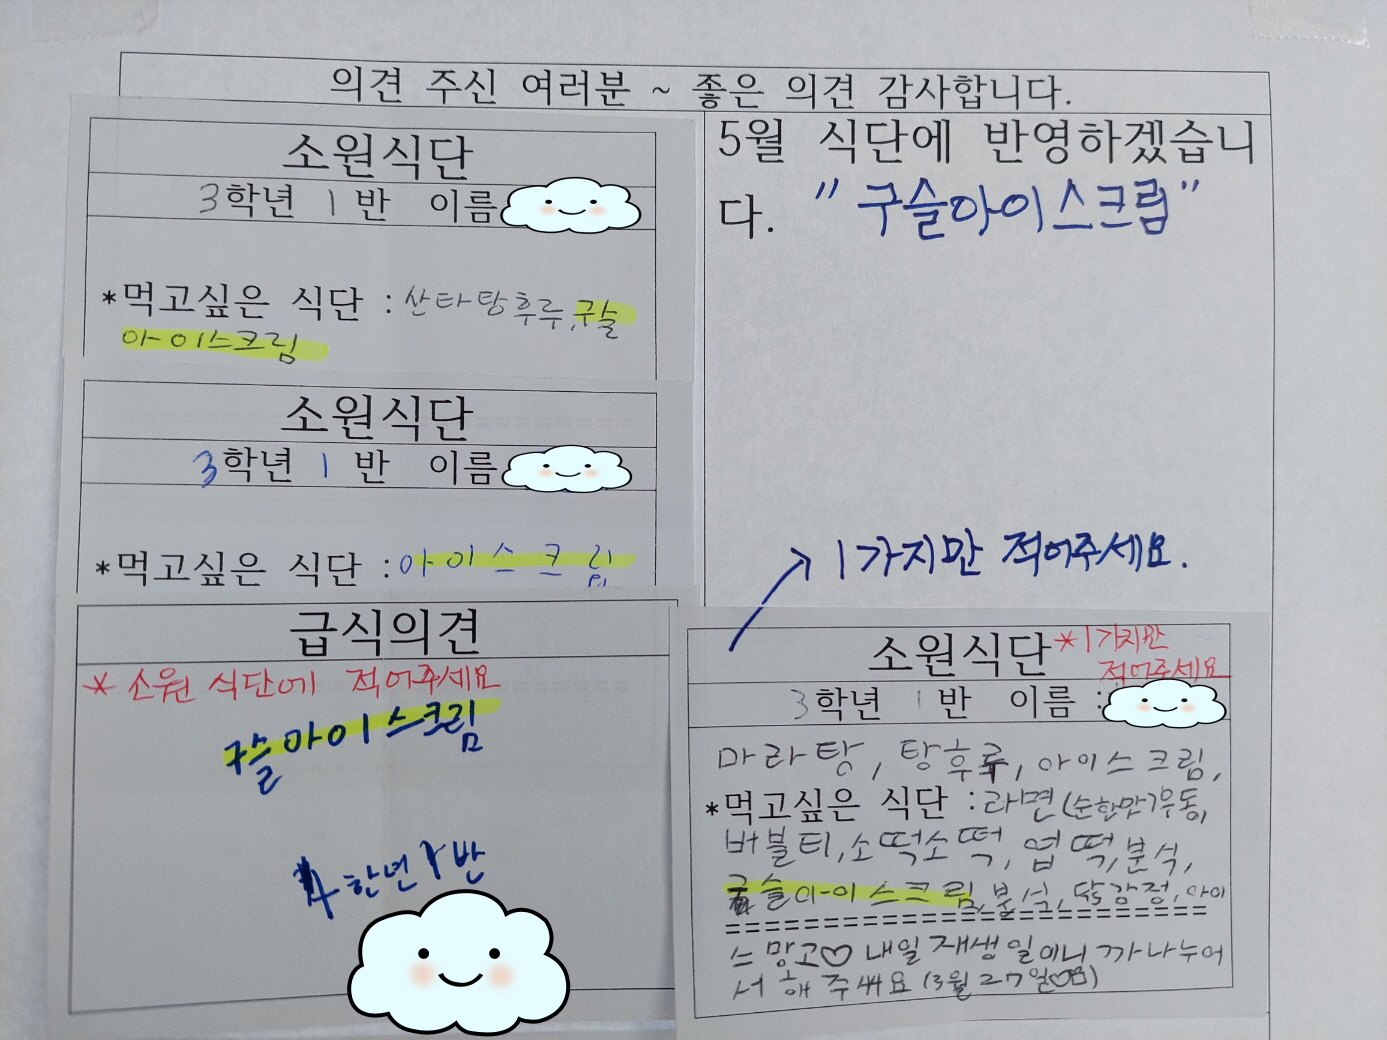 의견 주신 여러분 ~ 좋은 의견 감사합니다.
소원식단
3학년 1반 이름
*먹고싶은 식단 : 산타탕후루, 구슬
아이스크림
소원식단
3학년 1반 이름
*먹고싶은 식단 : 아이스크림
급식의견
* 소원 식단에 적어주세요
구슬아이스크림
4학년 1반
5월 식단에 반영하겠습니
다. "구슬아이스크림"
1가지만 적어주세요.
소원식단 *1가지만
적어주세요
3학년 1반 이름 :
마라탕, 탕후루, 아이스크림,
*먹고싶은 식단 : 라면(순한만
버블티, 소떡소떡, 엽떡, 분식,
구슬아이스크림, 분식, 닭강정, 아이
스망고♡ 내일 재생일이니까 나누어
서 해주쎄요 (3월27일